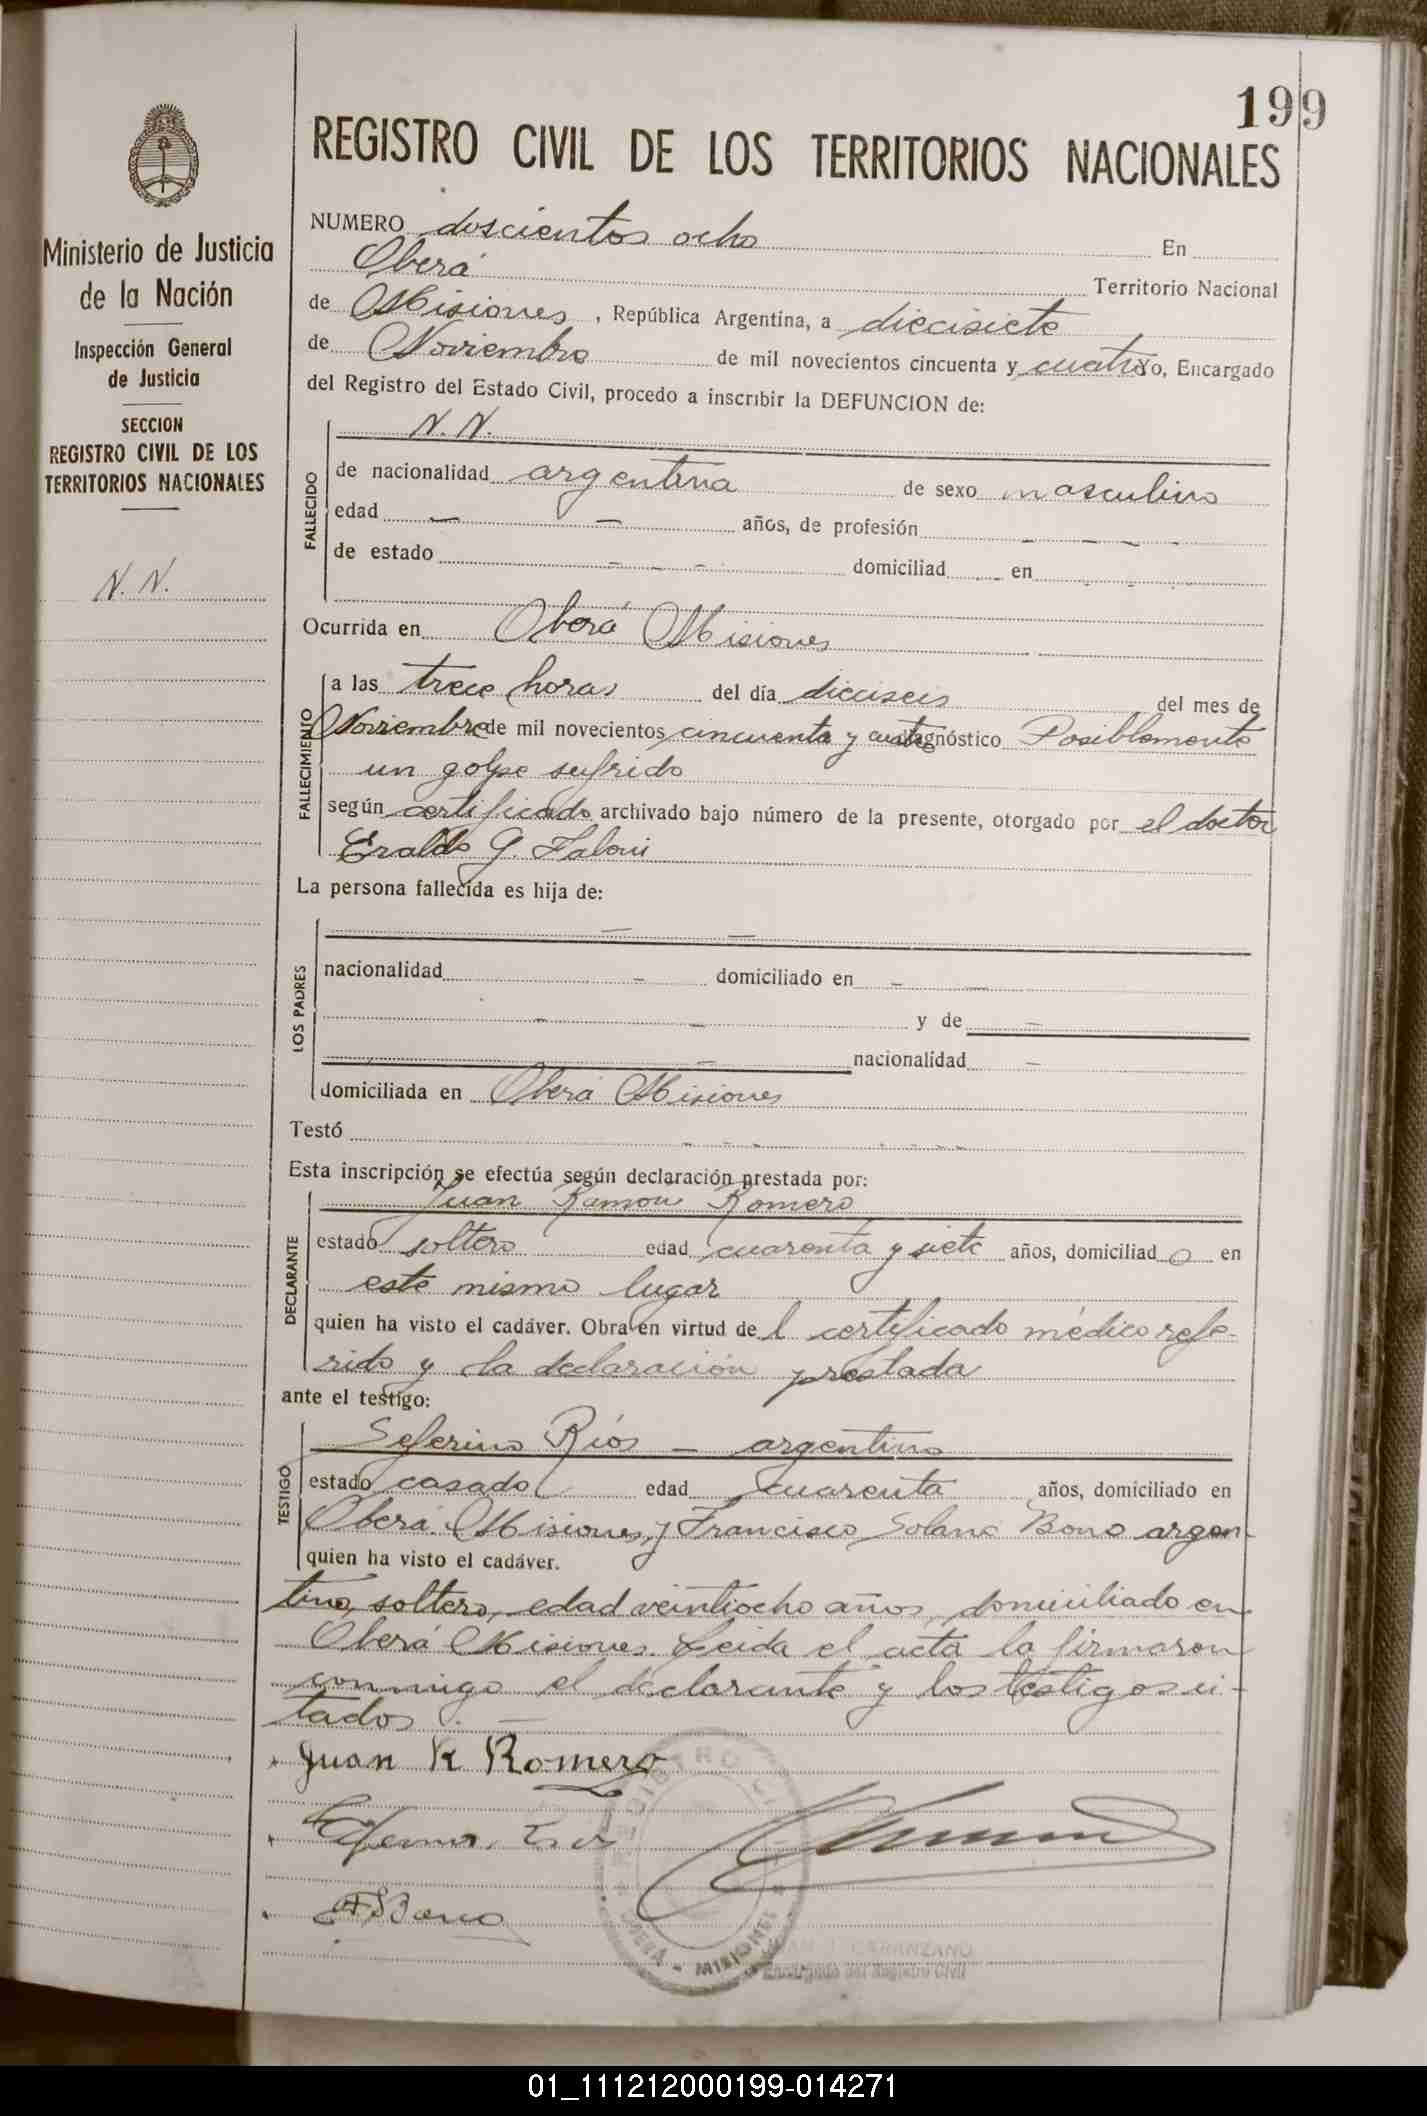 199
REGISTRO CIVIL DE LOS TERRITORIOS NACIONALES
Ministerio de Justicia
de la Nación
Inspección General
de Justicia
SECCION
REGISTRO CIVIL DE LOS
TERRITORIOS NACIONALES
N. N.
NUMERO doscientos ocho En
Oberá Territorio Nacional
de Misiones, República Argentina, a diecisiete
de Noviembre de mil novecientos cincuenta y cuatro Yo, Encargado
del Registro del Estado Civil, procedo a inscribir la DEFUNCION de:
FALLECIDO
N. N.
de nacionalidad argentina de sexo masculino
edad — — años, de profesión - - - -
de estado - - - domiciliad en - - -
Ocurrida en Oberá Misiones
FALLECIMIENTO
a las trece horas del día dieciseis del mes de
Noviembre de mil novecientos cincuenta y cuatro diagnóstico Posiblemente
un golpe sufrido
según certificado archivado bajo número de la presente, otorgado por el doctor
Eraldo G. Faloni
La persona fallecida es hija de:
LOS PADRES
— —
nacionalidad - domiciliado en - —
- — y de —
— nacionalidad —
domiciliada en Oberá Misiones
Testó - - - - - - -
Esta inscripción se efectúa según declaración prestada por:
DECLARANTE
Juan Ramon Romero
estado soltero edad cuarenta y siete años, domiciliad o en
este mismo lugar
quien ha visto el cadáver. Obra en virtud de l certificado médico refe-
rido y la declaración prestada
ante el testigo:
TESTIGO
Seferino Ríos — argentino
estado casado edad cuarenta años, domiciliado en
Oberá Misiones, y Francisco Solano Bono argen-
quien ha visto el cadáver.
tino, soltero, edad veintiocho años, domiciliado en
Oberá Misiones. Leida el acta la firmaron
conmigo el declarante y los testigos ci-
tados. —
Juan R Romero
F S Bono
REGISTRO CIVIL
OBERA - MISIONES
CARANZANO
Encargado del Registro Civil
01_111212000199-014271